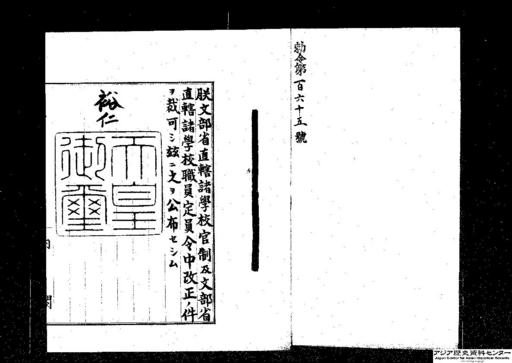 勅令第一百六十五號
朕文部省直轄諸學校官制及文部省
直轄諸學校職員定員令中改正ノ件
ヲ裁可シ玆ニ之ヲ公布セシム
裕仁
天皇
御璽
内閣
アジア歴史資料センター
Japan Center for Asian Historical Records